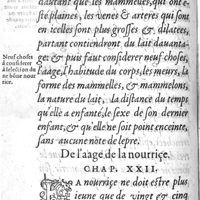 dautant que les mammelles, qui ont e-
sté plaines, les venes & arteres qui sont
en icelles sont plus grosses & dilatees,
partant contiendront du laict dauanta-
ges & puis faut considerer neuf choses,
Neuf choses
a considerer
à l'election du
ne bõne nour
rice.
l'aage, l'habitude du corps, les meurs, la
forme des mammelles, & mammelons,
la nature du laict, la distance du temps
qu'elle a enfanté, le sexe de son dernier
enfant, & qu'elle ne soit point enceinte,
sans aucune note de lepre.
De l'aage de la nourrice.
CHAP. XXII.
La nourrice ne doit estre plus
ieune que de vingt & cinq